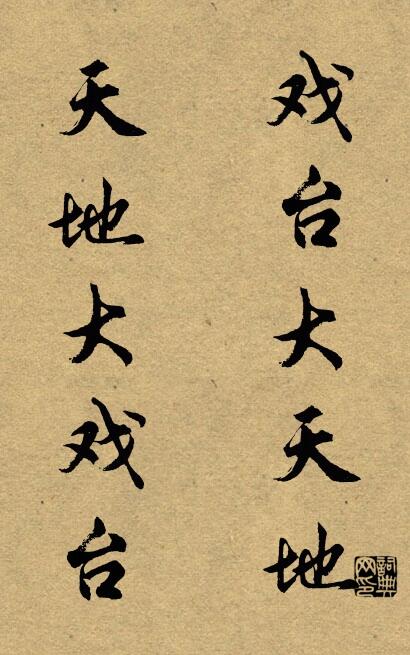 戏台大天地
天地大戏台
詞典网印